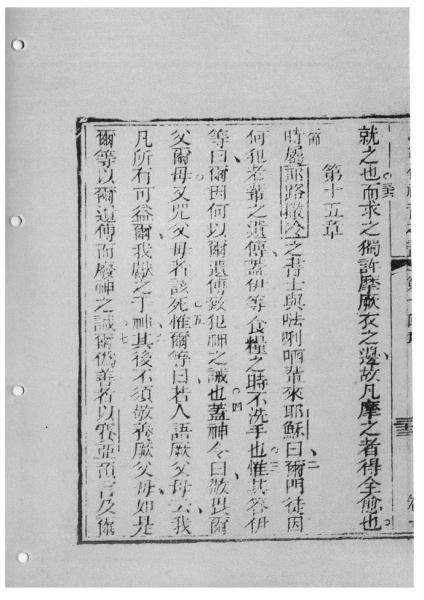 就之也而求之徜許摩厥衣之邊故凡摩之者得全愈也
第十五章
時屬耶路撒冷之書士與𠵽唎㗏輩來耶穌曰爾門徒因
何犯老輩之遺傳蓋伊等食糧之時不洗手也惟其答伊
等曰爾因何以爾遺傳致犯神之誡也蓋神令曰敬畏爾
父爾母又咒父母者該死惟爾等曰若人語厥父母云我
凡所有可益爾我獻之于神其後不須敬養厥父母如是
爾等以爾遺傳而廢神之誡爾僞善者以賽亞預言及爾